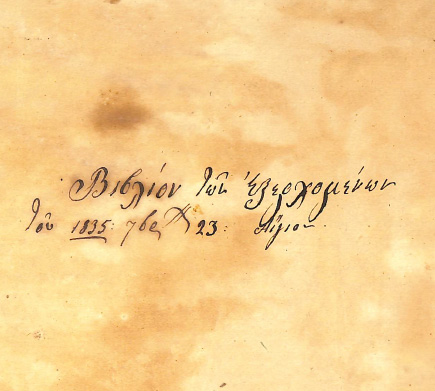 Βιβλίον τῶν ἐξερχομένων
τοῦ 1835: 7βρ 23: Αἴγιον